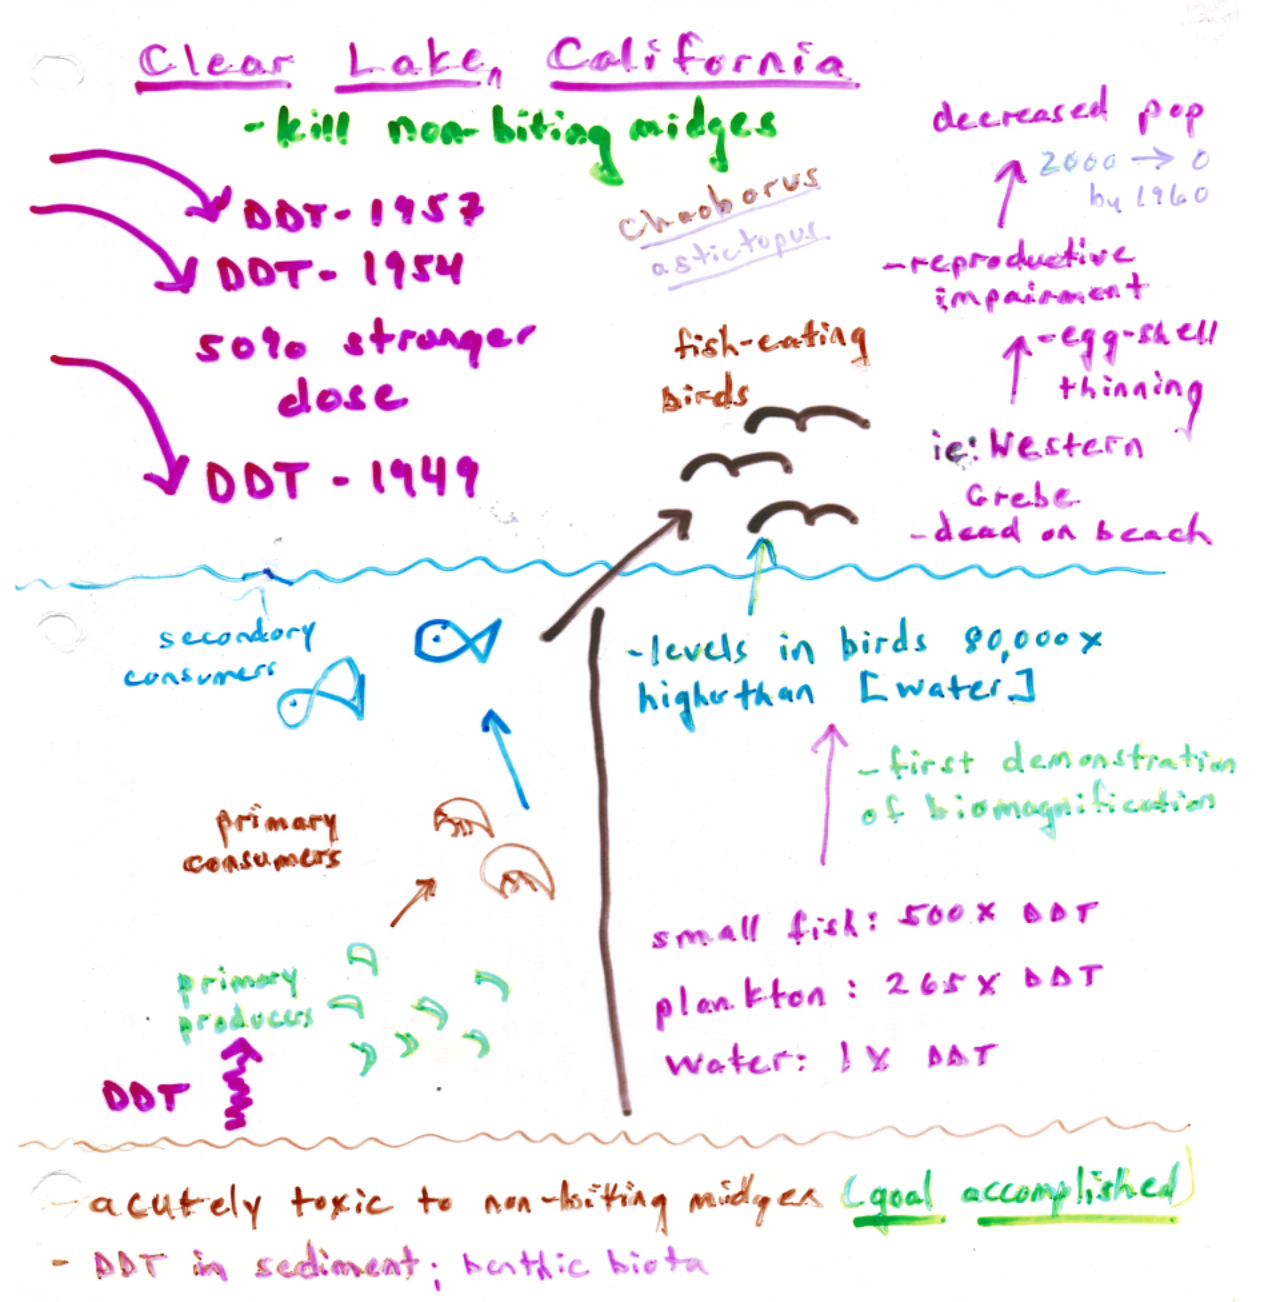 Clear Lake, California
-kill non-biting midges
DDT- 1957
DDT- 1954
50% stronger
dose
DDT - 1949
chaoborus
astictopus
fish-eating
birds
decreased pop
2000 → 0
by 1960
-reproductive
impairment
-egg-shell
thinning
ie: Western
Grebe
-dead on beach
secondary
consumers
primary
consumers
primary
producers
DDT
-levels in birds 80,000x
higher than [water]
-first demonstration
of biomagnification
small fish: 500x DDT
plankton: 265x DDT
Water: 1x DDT
- acutely toxic to non-biting midges (goal accomplished)
- DDT in sediment; benthic biota